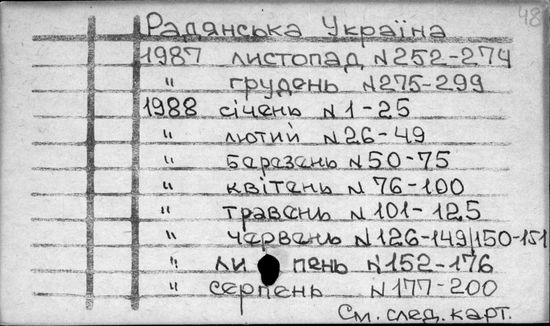 48
Радянська Україна
1987 листопад N252-274
" грудень N275-299
1988 січень N1-25
" лютий N26-49
" березень N50-75
" квітень N76-100
" травень N101-125
" червень N126-149/150-151
" ли пень N152-176
" серпень N177-200
См. след. карт.